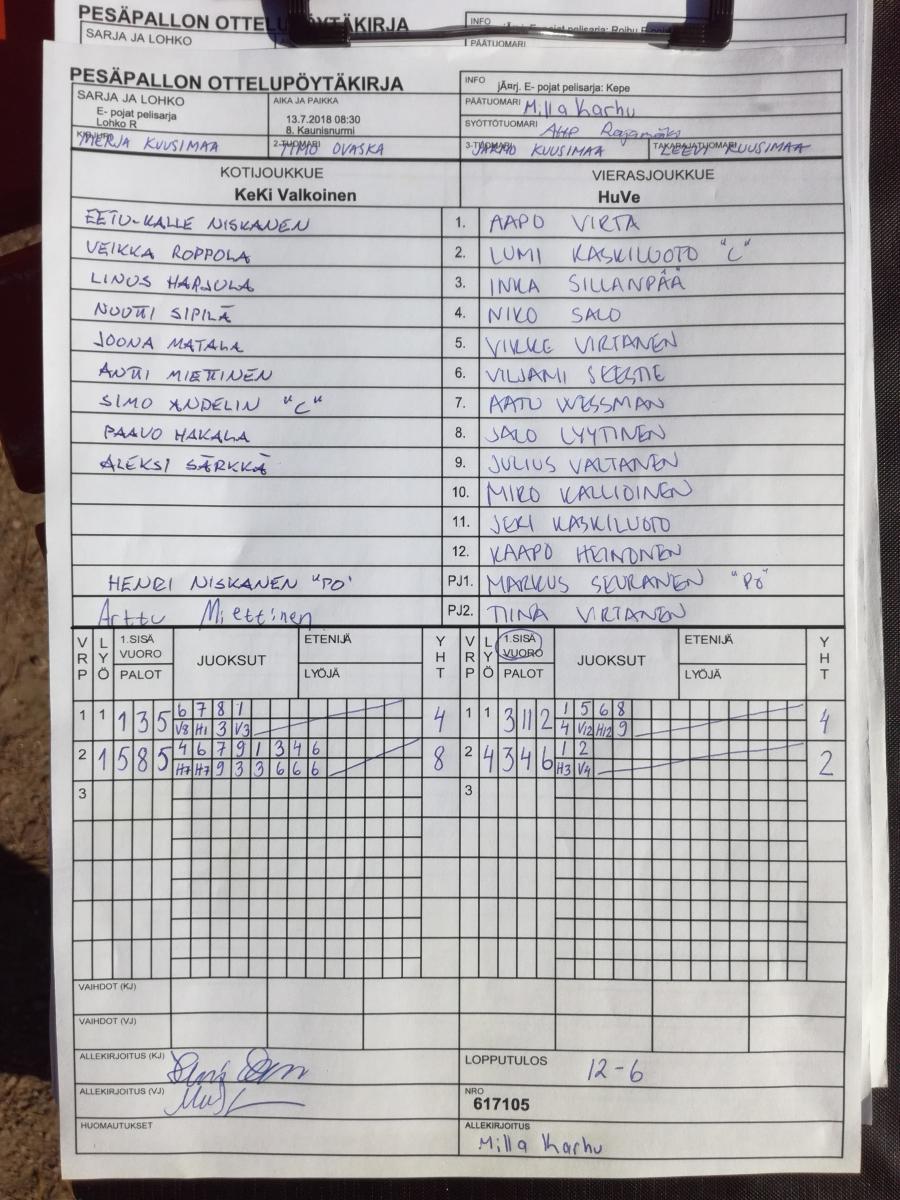 PESÄPALLON OTTELUPÖYTÄKIRJA
SARJA JA LOHKO
INFO
PÄÄTUOMARI
PESÄPALLON OTTELUPÖYTÄKIRJA
INFO
jÃ¤rj. E- pojat pelisarja: Kepe
SARJA JA LOHKO
E- pojat pelisarja
Lohko R
AIKA JA PAIKKA
13.7.2018 08:30
8. Kaunisnurmi
PÄÄTUOMARI Milla Karhu
SYÖTTÖTUOMARI
KIRJURI MERJA KUUSIMAA
2-TUOMARI TIMO OVASKA
3-TUOMARI JARMO KUUSIMAA
TAKARAJATUOMARI LEEVI KUUSIMAA
KOTIJOUKKUE
KeKi Valkoinen
VIERASJOUKKUE
HuVe
EETU-KALLE NISKANEN 1. AAPO VIRTA
VEIKKA ROPPOLA 2. LUMI KASKILUOTO "C"
LINUS HARJULA 3. INKA SILLANPÄÄ
NUUTTI SIPILÄ 4. NIKO SALO
JOONA MATALA 5. VIKKE VIRTANEN
ANTTI MIETTINEN 6. VILJAMI SEESTIE
SIMO ANDELIN "C" 7. AATU WESSMAN
PAAVO HAKALA 8. JALO LYYTINEN
ALEKSI SÄRKKÄ 9. JULIUS VALTANEN
10. MIRO KALLIOINEN
11. JEKI KASKILUOTO
12. KAAPO HEINONEN
HENRI NISKANEN "PO" PJ1. MARKUS SEURANEN "PÖ"
Arttu Miettinen PJ2. TIINA VIRTANEN
VRP LYÖ 1.SISÄ VUORO PALOT JUOKSUT ETENIJÄ LYÖJÄ YHT VRP LYÖ 1.SISÄ VUORO PALOT JUOKSUT ETENIJÄ LYÖJÄ YHT
1 1 1 3 5 6 7 8 1 4 1 1 3 11 2 1 5 6 8 4
V8 H1 3 V3 4 V12 H12 9
2 1 5 8 5 4 6 7 9 1 3 4 6 8 2 4 3 4 6 1 2 2
H7 H7 9 3 3 6 6 6 H3 V4
3 3
VAIHDOT (KJ)
VAIHDOT (VJ)
ALLEKIRJOITUS (KJ)
LOPPUTULOS 12-6
ALLEKIRJOITUS (VJ)
NRO
617105
HUOMAUTUKSET
ALLEKIRJOITUS
Milla Karhu